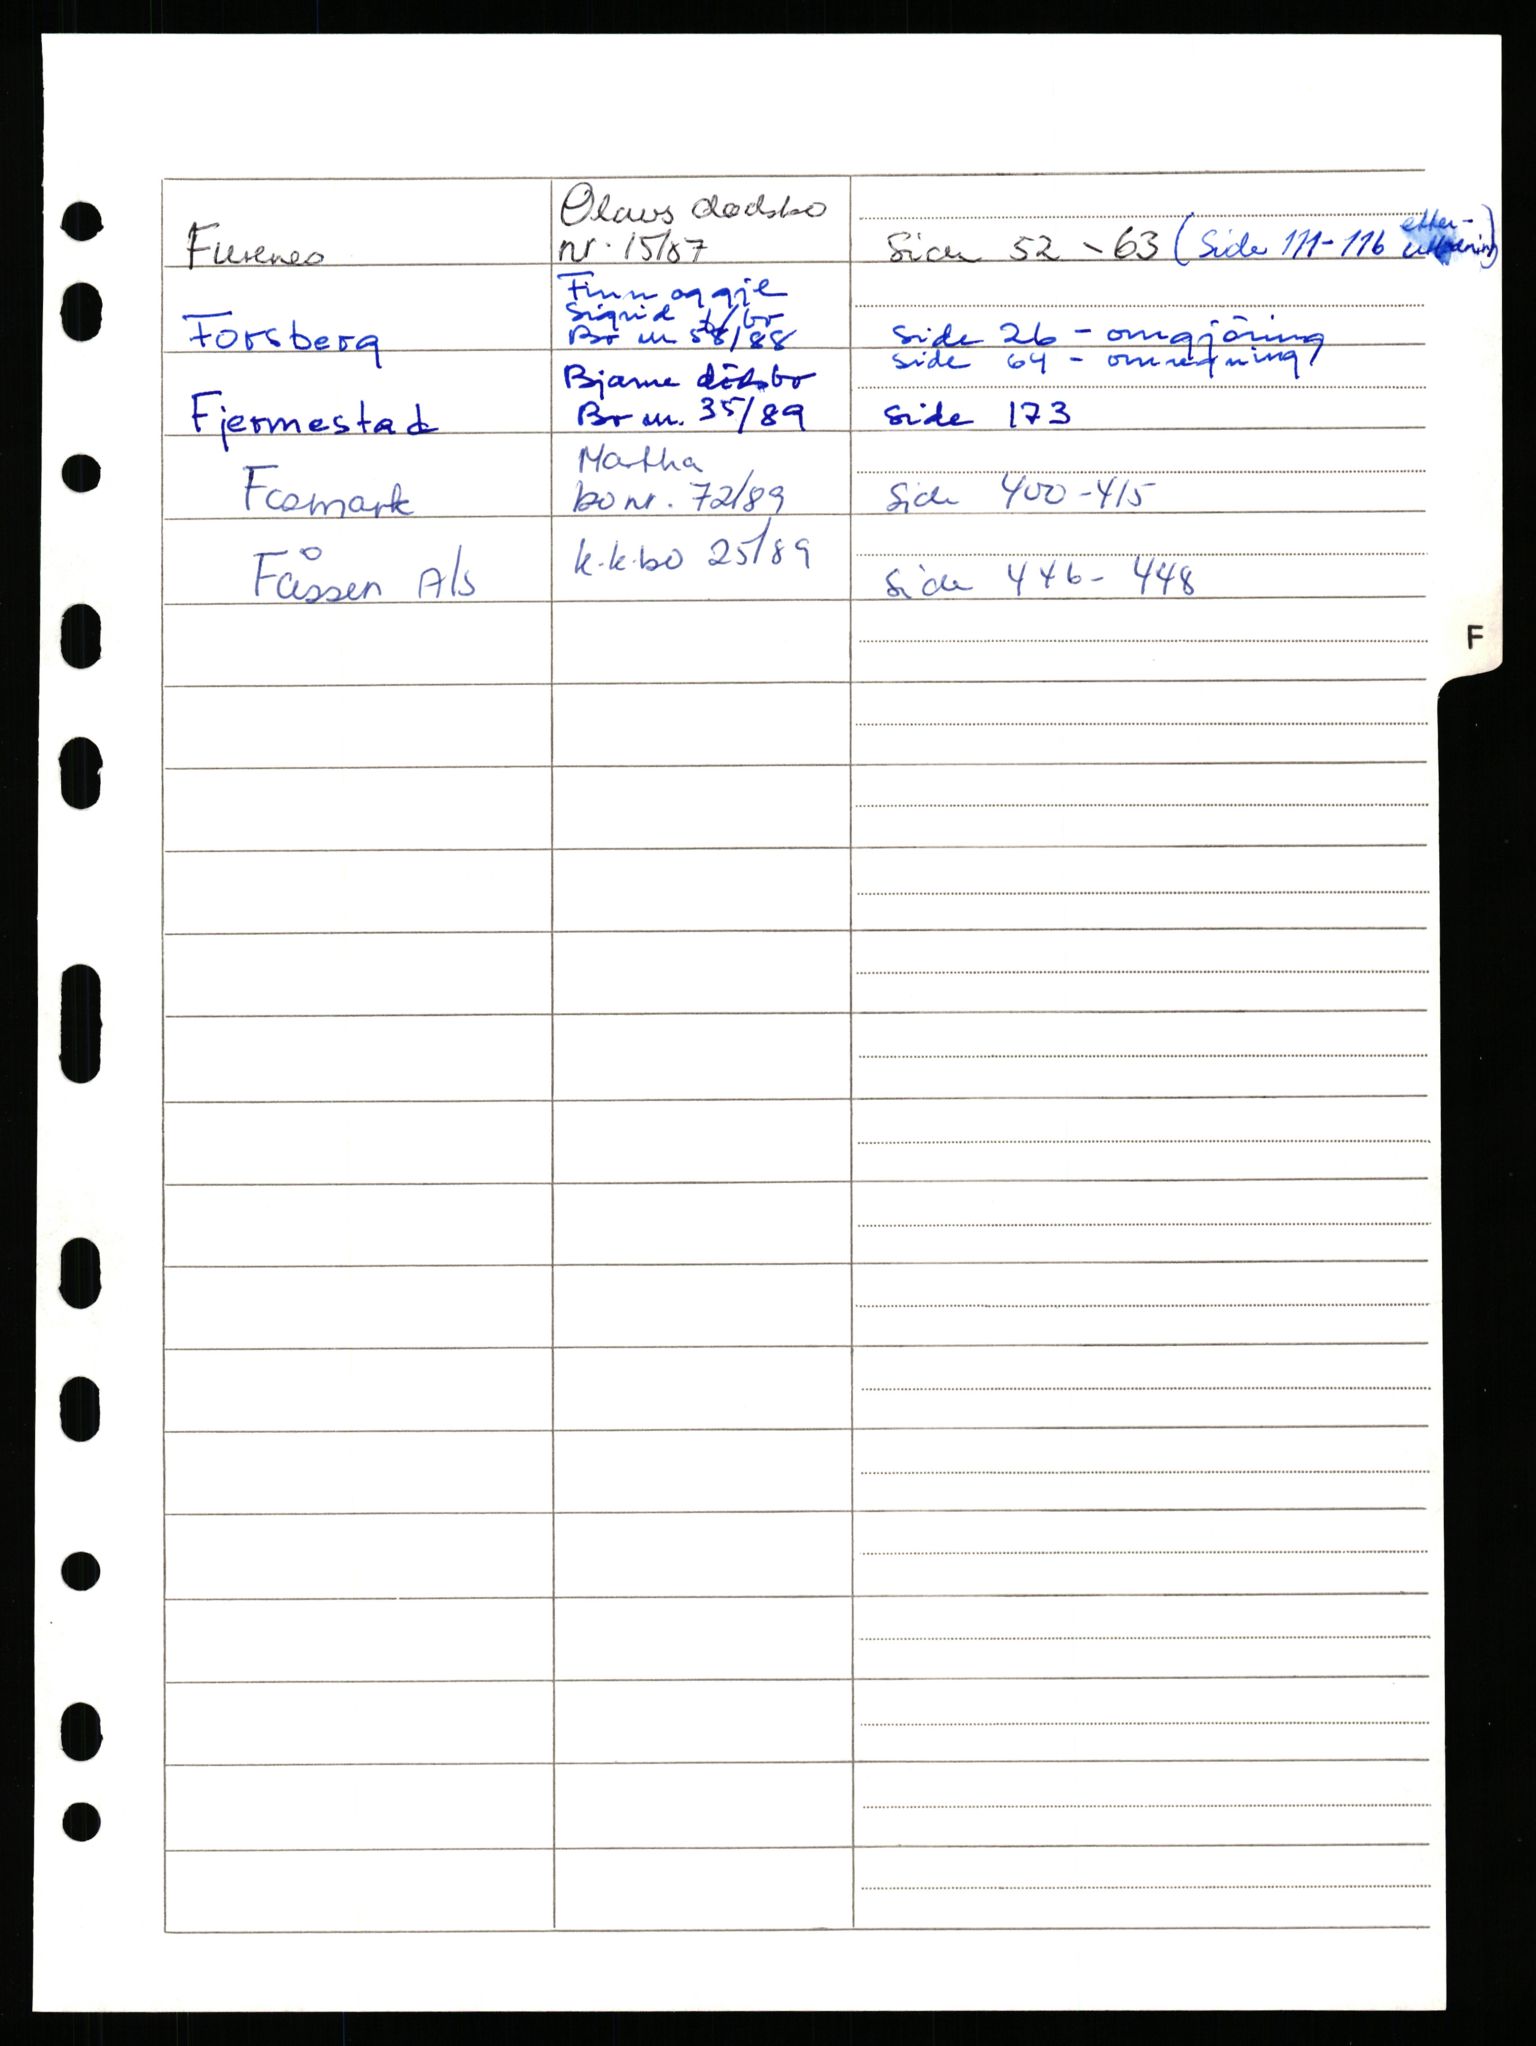 Furenes
Olaus dødsbo
nr. 15/87
Side 52 - 63 (Side 111-116 etter-
utlodning)
Forsberg
Finn og gje
Sigrid
Bo nr 58/88
side 26 - omgjöring
side 64 - omregning
Fjermestad
Bjarne dödsbo
Bo nr. 35/89
side 173
Fosmark
Martha
bo nr. 72/89
Side 400-415
Fåssen A/S
k.k.bo 25/89
Side 446-448
F